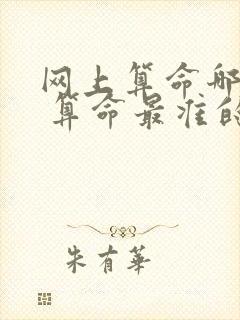 网上算命哪
算命最准的
朱有華